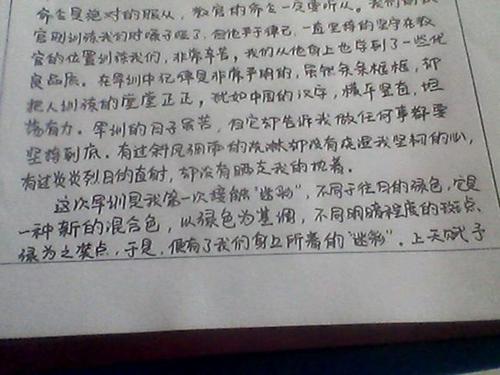 命令是绝对的服从，教官的命令一定要听从。我们的教
官训训练我们对嗓子哑了，但他严于律己，一直坚持的坚守在教
官的位置训练我们，非常辛苦，我们从他身上也学到了一些优
良品质。在军训中纪律是非常严明的，虽然条条框框，却
把人训练的堂堂正正，犹如中国的汉字，横平竖直，坦
荡有力。军训的日子虽苦，但它却告诉我做任何事都要
坚持到底。有过斜风细雨的洗淋却没有浇湿我坚韧的心，
有过炎炎烈日的直射，却没有晒走我的执着。
这次军训是我第一次接触"迷彩"，不同于往日的绿色，它是
一种新的混合色，以绿色为基调，不同明暗程度的斑点、
绿为之装点，于是，便有了我们身上所着的"迷彩"。上天赋予